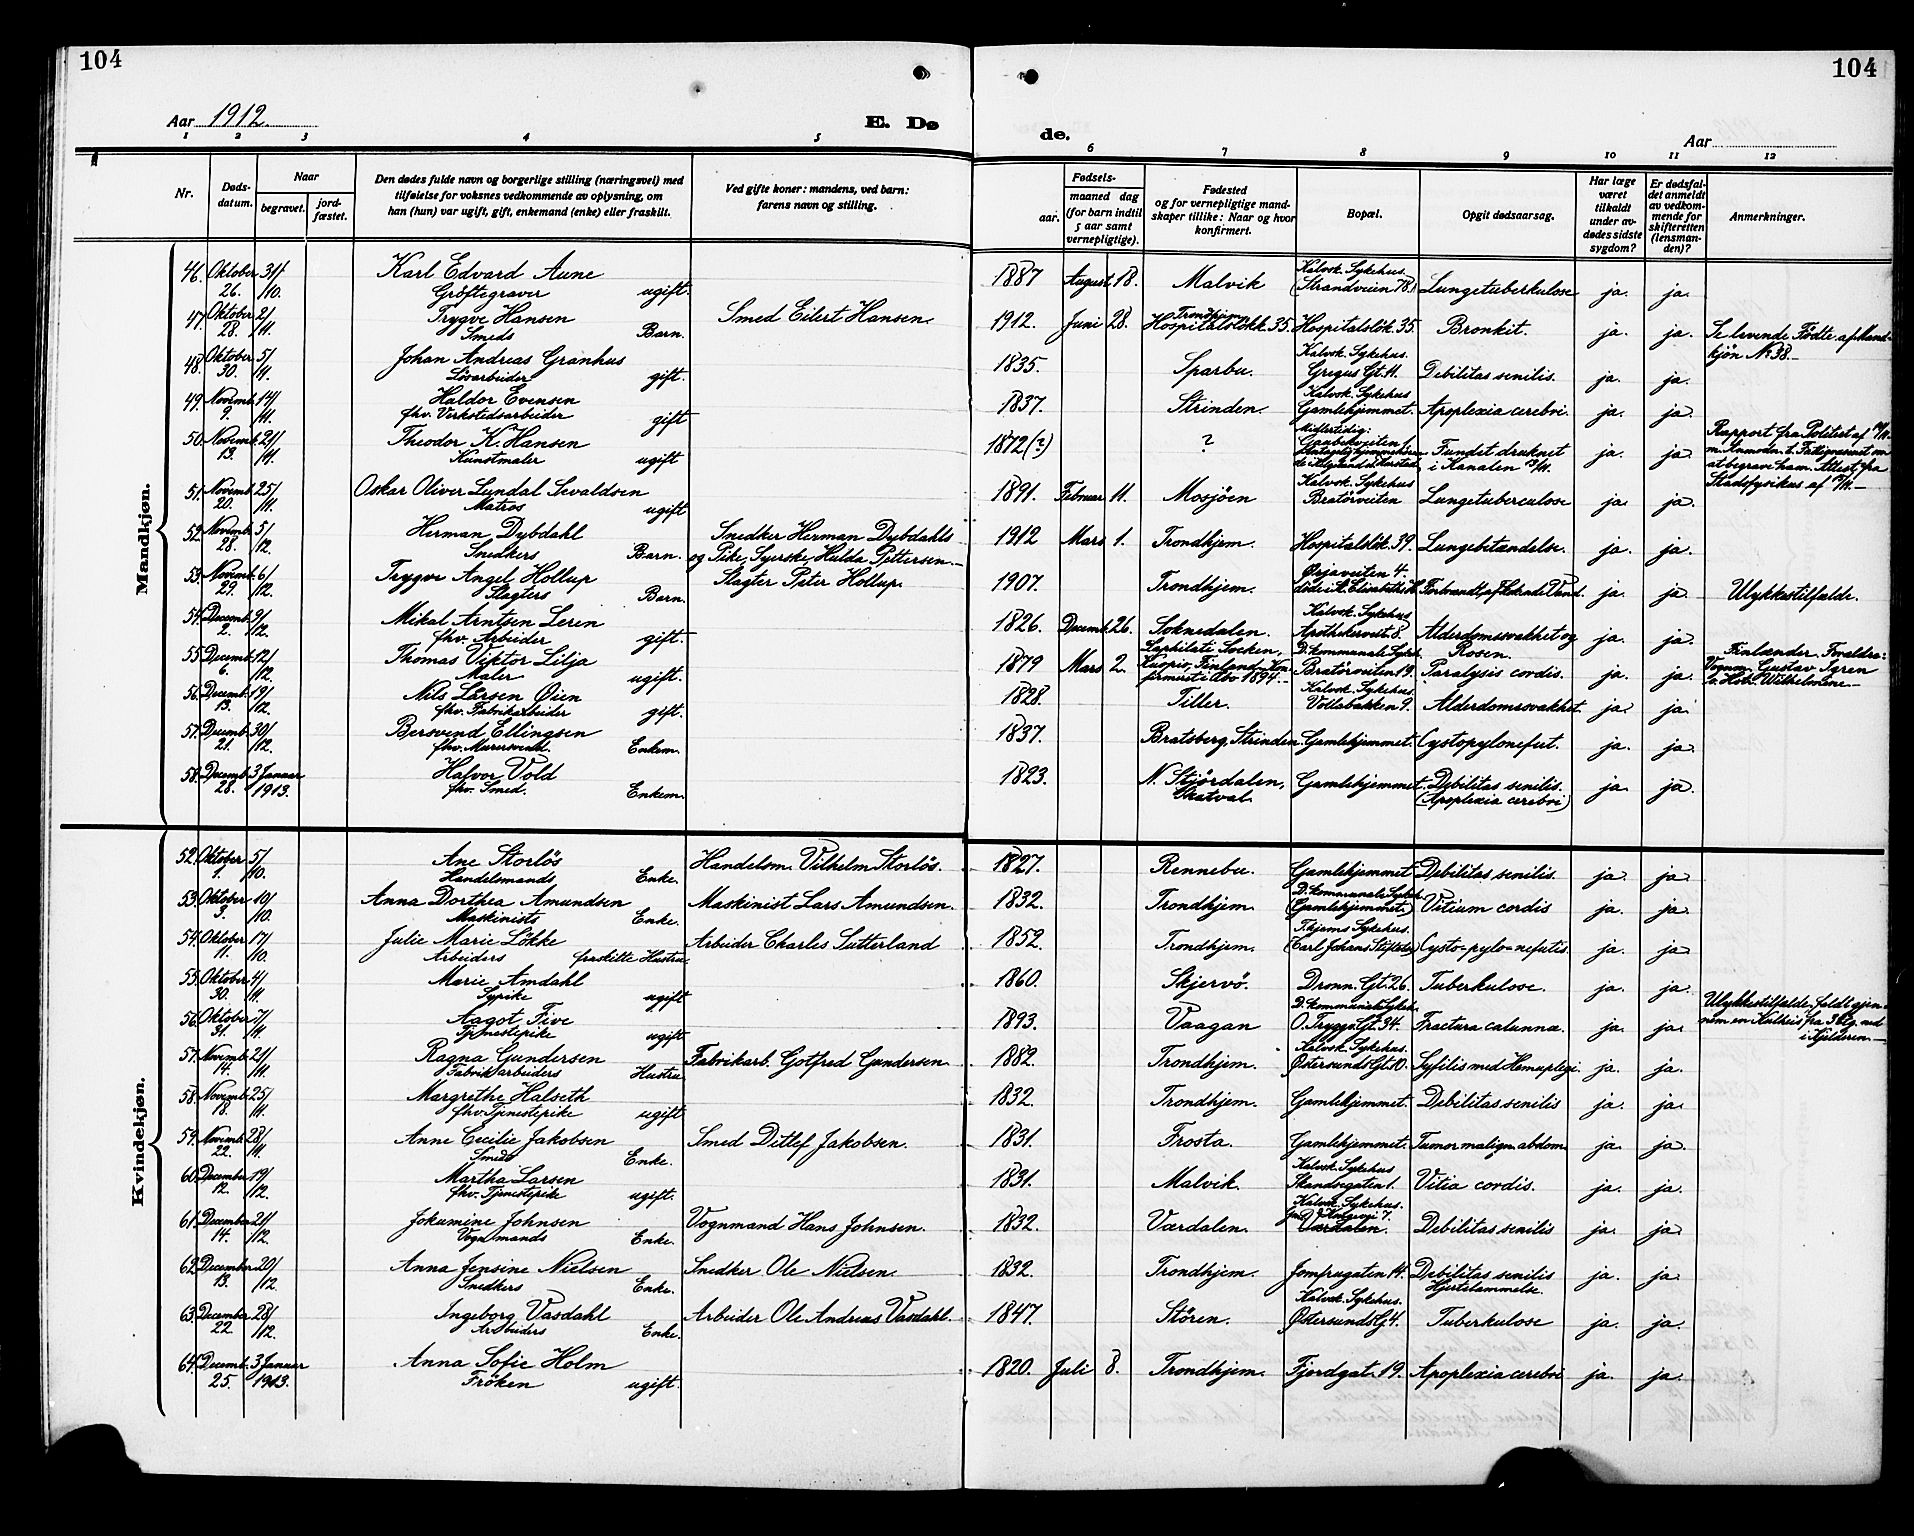 104
104
Aar 1912.
E. Dø
de.
Aar
1 2 3 4 5 6 7 8 9 10 11 12
Nr.
Døds-
datum.
Naar
begravet.
jord-
fæstet.
Den dødes fulde navn og borgerlige stilling (næringsvei) med
tilføielse for voksnes vedkommende av oplysning, om
han (hun) var ugift, gift, enkemand (enke) eller fraskilt.
Ved gifte koner: mandens, ved barn:
farens navn og stilling.
Fødsels-
aar.
maaned dag
(for barn indtil
5 aar samt
vernepligtige).
Fødested
og for vernepligtige mand-
skaper tillike: Naar og hvor
konfirmert.
Bopæl.
Opgit dødsaarsag.
Har læge
været
tilkaldt
under av-
dødes sidste
sygdom?
Er dødsfal-
det anmeldt
av vedkom-
mende for
skifteretten
(lensman-
den)?
Anmerkninger.
Mandkjøn.
46. Oktober 26. 31/10. Karl Edvard Aune Gröftegraver ugift. 1887 August 18. Malvik Kalvsk. Sykehus. (Strandveien 78.) Lungetuberkulose ja. ja.
47. Oktober 28. 2/11. Trygve Hansen Smeds Barn. Smed Eilert Hansen. 1912. Juni 28. Trondhjem Hospitalslökk. 35. Hospitalslök. 35. Bronkit. ja. ja. Se levende Födte af Mand-
kjön No 38.
48. Oktober 30. 5/11. Johan Andreas Granhus Lösarbeider gift. 1835. Sparbu. Kalvsk. Sykehus. Gregus Gt. 11. Debilitas senilis. ja. ja.
49. Novemb. 9. 14/11. Haldor Evensen fhv. Verkstedsarbeider gift 1837. Strinden. Kalvsk. Sykehus Gamlehjemmet. Apoplexia cerebri. ja. ja.
50. Novemb. 13. 21/11. Theodor K. Hansen Kunstmaler ugift 1872(?) ? Midlertidig: Fundet druknet i Kanalen 13/11. ja. ja. Rapport fra Politiet af
m. Anmodn. t. Fattigvæsenet om
at begrave ham. Attest fra
Stadsfysikus af
51. Novemb. 20. 25/11. Oskar Oliver Lundal Sevaldsen Matros ugift 1891. Februar 11. Mosjöen Kalvsk. Sykehus Bratörveiten Lungetuberculose ja. ja.
52. Novemb. 28. 5/12. Herman Dybdahl Snedkers Barn. Snedker Herman Dybdahls
og Pike, Syerske Hulda Pettersen. 1912 Mars 1. Trondhjem. Hospitalslök. 39. Lungebetændelse. ja. ja.
53. Novemb. 29. 6/12. Trygve Angel Hollup Slagters Barn. Slagter Peter Hollup. 1907. Trondhjem. Ørjaveiten 4. döde i St. Elisabeths H. Forbrændt af kokende Vand. ja. ja. Ulykkestilfælde.
54. Decemb. 2. 9/12. Mikal Arntsen Leren fhv. Arbeider gift. 1826. Decemb. 26. Soknedalen. Kalvsk. Sykehus Apothekerveit. 8. Alderdomssvakhet og Rosen. ja. ja.
55. Decemb. 6. 12/12. Thomas Viktor Lilja Maler ugift. 1879 Mars 2. Kuopio, Finland. Kon-
firmert i Åbo 1894. D. kommunale Sykeh. Bratörveiten 19. Paralysis cordis. ja. ja. Finlænder. Forældre:
Vognm. Gustav
56. Decemb. 13. 19/12. Nils Larsen Öien fhv. Fabrikarbeider gift. 1828. Tiller. Kalvsk. Sykehus. Vollabakken 9. Alderdomssvakhet ja. ja.
57. Decemb. 21. 30/12. Bersvend Ellingsen fhv. Murersvend Enkem. 1837. Bratsberg, Strinden. Gamlehjemmet. Cystopylonefrit. ja. ja.
58. Decemb. 28. 3 Januar 1913. Halvor Vold fhv. Smed. Enkem. 1823. N. Stjördalen, Skatval. Gamlehjemmet. Debilitas senilis. (Apoplexia cerebri) ja. ja.
Kvindekjøn.
52. Oktober 1. 5/10. Ane Storlös Handelsmands Enke. Handelsm. Vilhelm Storlös. 1827. Rennebu. Gamlehjemmet Debilitas senilis. ja. ja.
53. Oktober 3. 10/10. Anna Dorthea Amundsen Maskinists Enke. Maskinist Lars Amundsen. 1832. Trondhjem. D. kommunale Sykeh. (Gamlehjemmet.) Vitium cordis ja. ja.
54. Oktober 11. 17/10. Julie Marie Lökke Arbeiders fraskilte Hustru. Arbeider Charles Sutterland 1852. Trondhjem. T.hjems Sykehus. (Carl Johans Stiftelse) Cysto-pylo-nefritis ja. ja.
55. Oktober 30. 4/11. Marie Amdahl Sypike ugift 1860. Skjervö. Dronn. Gt. 26. Tuberkulose. ja. ja.
56. Oktober 31. 7/11. Aagot Five Tjenestepike ugift 1893. Vaagan D. kommunale Sykeh. O. Tryggv. Gt. 34. Fractura calunna. ja. ja. Ulykkestilfælde, faldt gjen-
nem en Kulheis fra 3 Etg. ned
i Kjelderen.
57. Novemb. 14. 21/11. Ragna Gundersen Fabrikarbeiders Hustru Fabrikarb. Gotfred Gundersen 1882. Trondhjem. Kalvsk. Sykehus. Østersunds Gt. 10. Syfilis med Hemiplegi ja. ja.
58. Novemb. 18. 25/11. Margrethe Halseth fhv. Tjenestepike ugift 1832. Trondhjem. Gamlehjemmet. Debilitas senilis ja. ja.
59. Novemb. 22. 28/11. Anne Cecilie Jakobsen Smeds Enke. Smed Ditlef Jakobsen. 1831. Frosta. Gamlehjemmet. Tumor malign. abdom. ja. ja.
60. December 12. 19/12. Martha Larsen fhv. Tjenestepike ugift. 1831. Malvik. Kalvsk. Sykehus Skansegaten 1. Vitia cordis. ja. ja.
61. December 14. 21/12. Jokumine Johnsen Vognmands Enke. Vognmand Hans Johnsen. 1832. Værdalen. Kalvsk. Sykehus. Værdalen. Debilitas senilis ja. ja.
62. December 13. 20/12. Anna Jensine Nielsen Snedkers Enke. Snedker Ole Nielsen. 1832. Trondhjem. Jomfrugaten 14. Debilitas senilis Hjertelammelse. ja. ja.
63. December 22. 28/12. Ingeborg Vasdahl Arbeiders Enke. Arbeider Ole Andreas Vasdahl. 1847. Stören. Kalvsk. Sykehus. Østersunds G. 4. Tuberkulose ja. ja.
64. Decemb. 25. 3 Januar 1913. Anna Sofie Holm Fröken ugift. 1820. Juli 8. Trondhjem. Fjordgat. 19. Apoplexia cerebri ja. ja.